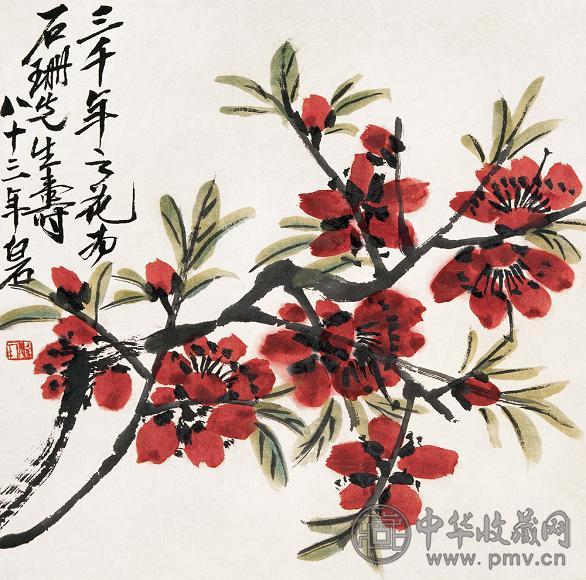 三千年之花为
石珊先生壽
八十三年白石
中华收藏网
www.pmv.cn